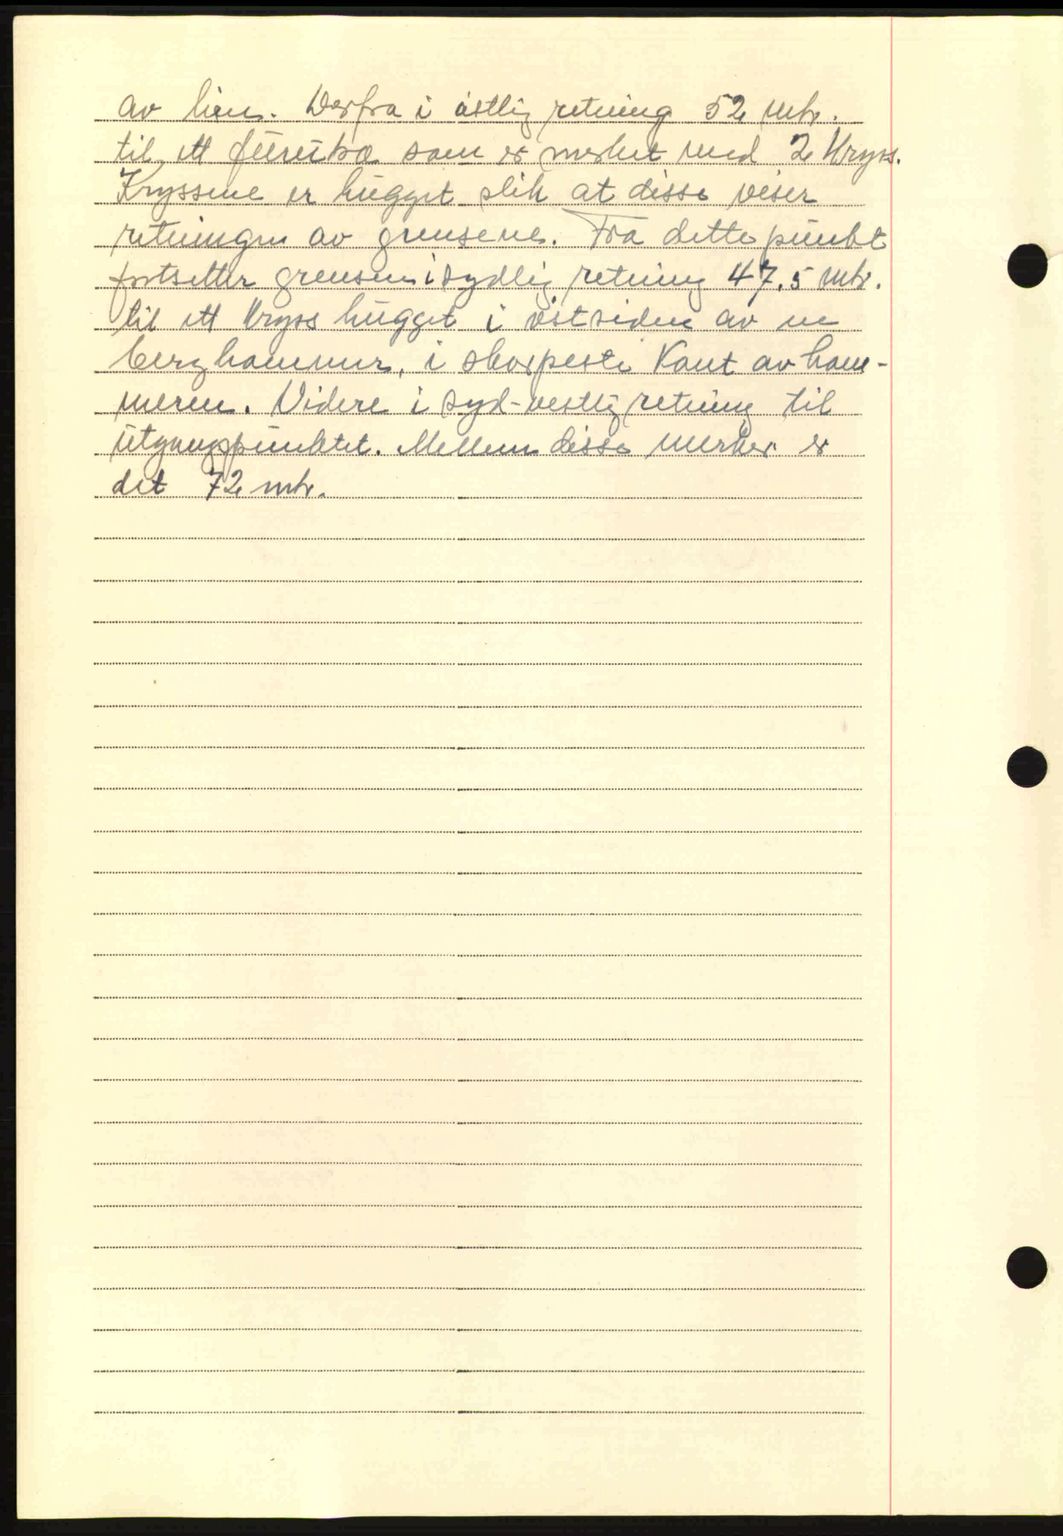 av lien. Derfra i østlig retning 52 mtr.
til ett furuba som er merket med 2 kryss.
Kryssene er hugget slik at disse viser
retningen av grensene. Fra dette punkt
fortsetter grensen i sydlig retning 47,5 mtr.
til ett kryss hugget i østsiden av en
berghammer, i skarpeste Kant av ham-
meren. Videre i syd-vestlig retning til
utgangspunktet. Mellem disse merker er
det 72 mtr.